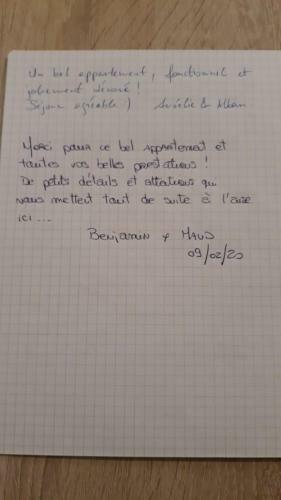 Un bel appartement, fonctionnel et
joliement décoré !
Séjour agréable :) Aurélie &
Merci pour ce bel appartement et
toutes vos belles prestations !
De petits détails et attentions qui
nous mettent tout de suite à l'aise
ici ...
Benjamin & Maud
09/02/20